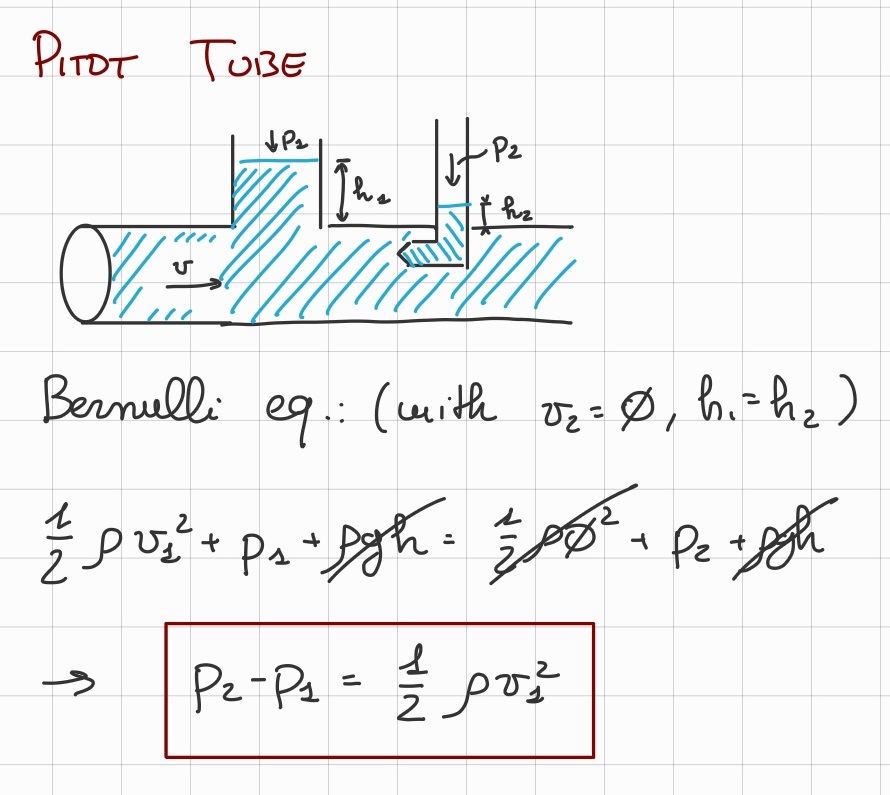 PITOT TUBE
P₁
h₁
P₂
h₂
v
Bernulli eq.: (with v₂=∅, h₁=h₂)
1/2 ρv₁² + p₁ + ρgh = 1/2 ρ∅² + p₂ + ρgh
→ p₂-p₁ = 1/2 ρv₁²